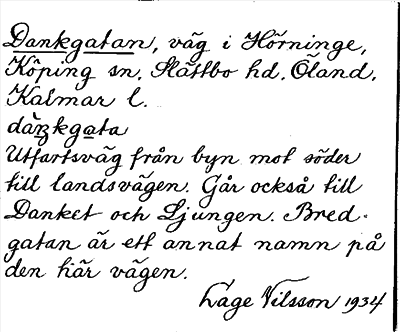 Dankgatan, väg i Hörninge,
Köping sn. Slättbo hd. Öland.
Kalmar l.
dàŋkgata
Utfartsväg från byn mot söder
till landsvägen. Går också till
Danket och Ljungen. Bred-
gatan är ett annat namn på
den här vägen.
Lage Nilsson 1934